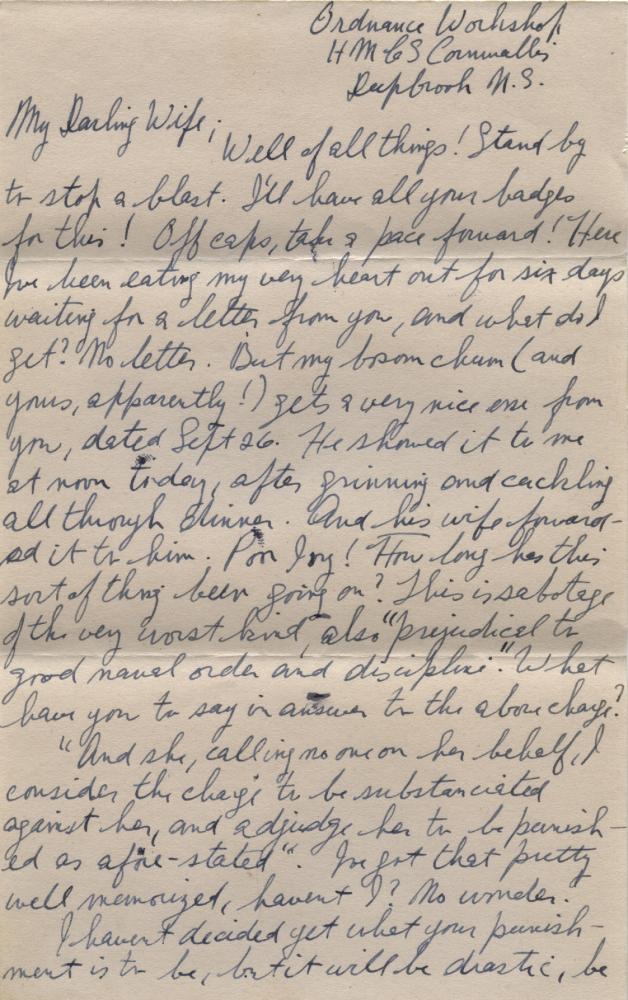 Ordnance Workshop
HMCS Cornwallis
Deepbrook N.S.
My Darling Wife;
Well of all things! Stand by
to stop a blast. I'll have all your badges
for this! Off caps, take a pace forward! Here
I've been eating my very heart out for six days
waiting for a letter from you, and what do I
get? No letter. But my bosom chum (and
yours, apparently!) gets a very nice one from
you, dated Sept 26. He showed it to me
at noon today, after grinning and cackling
all through dinner. And his wife forward-
ed it to him. Poor Joy! How long has this
sort of thing been going on? This is sabotage
of the very worst kind, also "prejudical to
good naval order and discipline". What
have you to say in answer to the above charge?
"And she, calling no one on her behalf, I
consider the charge to be substanciated
against her, and adjudge her to be punish-
ed as afore-stated". I've got that pretty
well memorized, havent I? No wonder.
I havent decided yet what your punish-
ment is to be, but it will be drastic, be